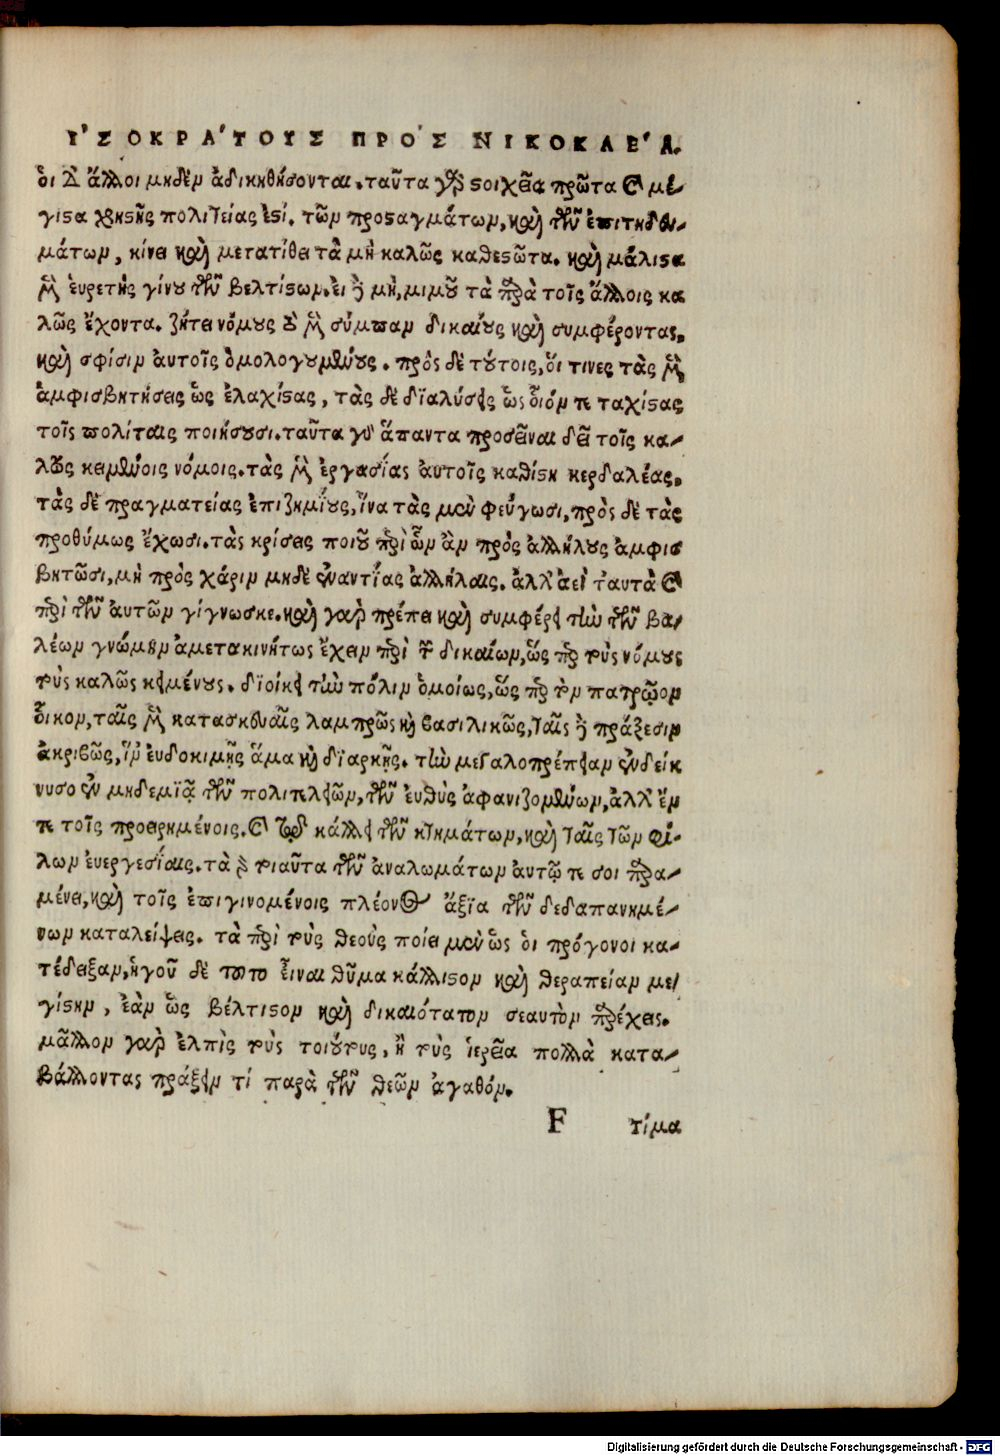 ἸΣΟΚΡΆΤΟΥΣ ΠΡῸΣ ΝΙΚΟΚΛΈΑ.
ὁι δ' ἄλλοι μηδὲν ἀδικηθήσονται. ταῦτα γὰρ στοιχεῖα πρῶτα καὶ μέ-
γιστα χρηστῆς πολιτείας ἐστί. τῶν προσταγμάτων, καὶ τῶν ἐπιτηδευ-
μάτων, κίνει καὶ μετατίθει τὰ μὴ καλῶς καθεστῶτα. καὶ μάλιστα
μὲν ἑυρετὴς γίνου τῶν βελτίστων. ἐι δὲ μὴ, μιμοῦ τὰ παρὰ τοῖς ἄλλοις κα
λῶς ἔχοντα. ζήτει νόμους τοὺς μὲν σύμπαν δικαίους καὶ συμφέροντας,
καὶ σφίσιν ἀυτοῖς ὁμολογουμένους. πρὸς δὲ τούτοις, ὅι τινες τὰς μὲν
ἀμφισβητήσεις ὡς ἐλαχίστας, τὰς δὲ διαλύσεις ὡς ὁιόν τε ταχίστας
τοῖς πολίταις ποιήσουσι. ταῦτα γὰρ ἅπαντα προσεῖναι δεῖ τοῖς κα-
λῶς κειμένοις νόμοις. τὰς μὲν ἐργασίας ἀυτοῖς καθίστη κερδαλέας,
τὰς δὲ πραγματείας ἐπιζημίους, ἵνα τὰς μὲν φεύγωσι, πρὸς δὲ τὰς
προθύμως ἔχωσι. τὰς κρίσεις ποιοῦ περὶ ὧν ἂν πρὸς ἀλλήλους ἀμφισ
βητῶσι, μὴ πρὸς χάριν μηδὲ ἐναντίας ἀλλήλαις. ἀλλ' ἀεὶ ταυτὰ καὶ
περὶ τῶν ἀυτῶν γίγνωσκε. καὶ γὰρ πρέπει καὶ συμφέρει τὴν τῶν βα-
λέων γνώμην ἀμετακινήτως ἔχειν περὶ τῶν δικαίων, ὥσπερ τοὺς νόμους
τοὺς καλῶς κειμένους. διοίκει τὴν πόλιν ὁμοίως, ὥσπερ τὸν πατρῷον
ὀῖκον, ταῖς μὲν κατασκευαῖς λαμπρῶς καὶ βασιλικῶς, ταῖς δὲ πράξεσιν
ἀκριβῶς, ἵν' ἐυδοκιμῇς ἅμα καὶ διαρκῇς. τὴν μεγαλοπρέπειαν ἐνδείκ
νυσο ἐν μηδεμιᾷ τῶν πολυτελειῶν, τῶν ἐυθὺς ἀφανιζομένων, ἀλλ' ἔν
τε τοῖς προειρημένοις, καὶ τῷ κάλλει τῶν κτημάτων, καὶ ταῖς τῶν φί-
λων ἐυεργεσίαις. τὰ γὰρ τοιαῦτα τῶν ἀναλωμάτων ἀυτῷ τε σοι παρα-
μένει, καὶ τοῖς ἐπιγινομένοις πλέονος ἄξια τῶν δεδαπανημέ-
νων καταλείψεις. τὰ περὶ τοὺς θεοὺς ποίει μὲν ὡς ὁι πρόγονοι κα-
τέδειξαν, ἡγοῦ δὲ τοῦτο ἐῖναι θῦμα κάλλιστον καὶ θεραπείαν με-
γίστην, ἐὰν ὡς βέλτιστον καὶ δικαιότατον σεαυτὸν παρέχεις.
μᾶλλον γὰρ ἐλπὶς τοὺς τοιούτους, ἢ τοὺς ἱερεῖα πολλὰ κατα-
βάλλοντας πράξειν τί παρὰ τῶν θεῶν ἀγαθόν.
F τίμα
Digitalisierung gefördert durch die Deutsche Forschungsgemeinschaft - DFG